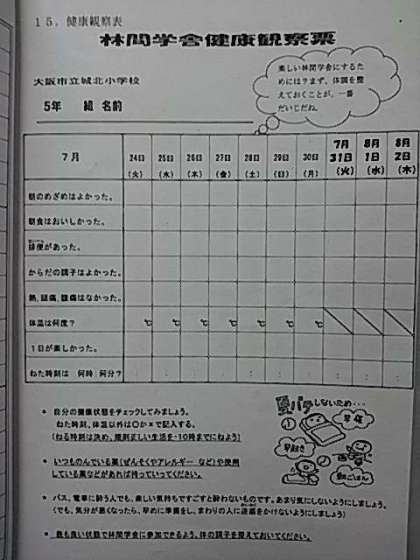 15．健康観察表
林間学舎健康観察票
大阪市立城北小学校
5年　組 名前
楽しい林間学舎にするた
めには？まず、体調を整
えておくことが、一番
だいじだね。
7月 24日（火） 25日（水） 26日（木） 27日（金） 28日（土） 29日（日） 30日（月） 7月31日（火） 8月1日（水） 8月2日（木）
朝のめざめはよかった。
朝食はおいしかった。
排便があった。
からだの調子はよかった。
熱、頭痛、腹痛はなかった。
体温は何度？ ℃ ℃ ℃ ℃ ℃ ℃ ℃
1日が楽しかった。
ねた時刻は　何時 何分？ : : : : : : : : :
夏バテしないため・・・
早寝
早起き
朝ごはん
• 自分の健康状態をチェックしてみましょう。
ねた時刻、体温以外は○か×で記入する。
（ねる時刻は決め、規則正しい生活を・10時までにねよう）
• いつものんでいる薬（ぜんそくやアレルギー など）や使用
している薬などがあれば持っていってください。
• バス、電車に酔う人でも、楽しい気持ちですごすと酔わないものです。あまり気にしないようにしましょう。
（でも、気分が悪くなったら、早めに準備をし、まわりの人に迷惑をかけないようにしましょう）
• 最も良い状態で林間学舎に参加できるよう、体の調子を整えておいてください。